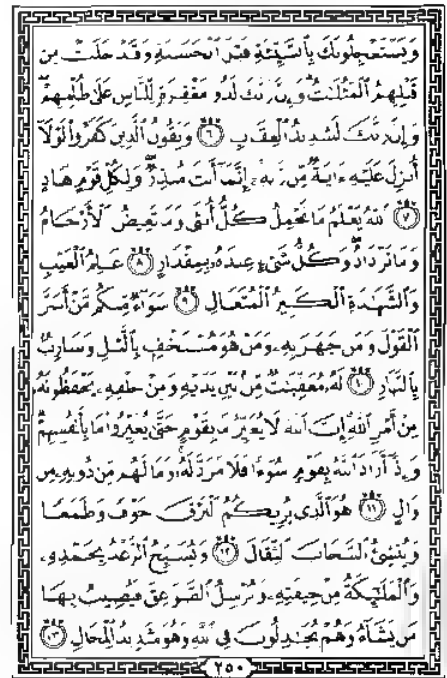 وَيَسْتَعْجِلُونَكَ بِالسَّيِّئَةِ قَبْلَ الْحَسَنَةِ وَقَدْ خَلَتْ مِن
قَبْلِهِمُ الْمَثُلَاتُ وَإِنَّ رَبَّكَ لَذُو مَغْفِرَةٍ لِّلنَّاسِ عَلَىٰ ظُلْمِهِمْ
وَإِنَّ رَبَّكَ لَشَدِيدُ الْعِقَابِ ٦ وَيَقُولُ الَّذِينَ كَفَرُوا لَوْلَا
أُنزِلَ عَلَيْهِ ءَايَةٌ مِّن رَّبِّهِ إِنَّمَا أَنتَ مُنذِرٌ وَلِكُلِّ قَوْمٍ هَادٍ
٧ اللَّهُ يَعْلَمُ مَا تَحْمِلُ كُلُّ أُنثَىٰ وَمَا تَغِيضُ الْأَرْحَامُ
وَمَا تَزْدَادُ وَكُلُّ شَيْءٍ عِندَهُ بِمِقْدَارٍ ٨ عَالِمُ الْغَيْبِ
وَالشَّهَادَةِ الْكَبِيرُ الْمُتَعَالِ ٩ سَوَاءٌ مِّنكُم مَّنْ أَسَرَّ
الْقَوْلَ وَمَن جَهَرَ بِهِ وَمَنْ هُوَ مُسْتَخْفٍ بِاللَّيْلِ وَسَارِبٌ
بِالنَّهَارِ ١٠ لَهُ مُعَقِّبَاتٌ مِّن بَيْنِ يَدَيْهِ وَمِنْ خَلْفِهِ يَحْفَظُونَهُ
مِنْ أَمْرِ اللَّهِ إِنَّ اللَّهَ لَا يُغَيِّرُ مَا بِقَوْمٍ حَتَّىٰ يُغَيِّرُوا مَا بِأَنفُسِهِمْ
وَإِذَا أَرَادَ اللَّهُ بِقَوْمٍ سُوءًا فَلَا مَرَدَّ لَهُ وَمَا لَهُم مِّن دُونِهِ مِن
وَالٍ ١١ هُوَ الَّذِي يُرِيكُمُ الْبَرْقَ خَوْفًا وَطَمَعًا
وَيُنشِئُ السَّحَابَ الثِّقَالَ ١٢ وَيُسَبِّحُ الرَّعْدُ بِحَمْدِهِ
وَالْمَلَائِكَةُ مِنْ خِيفَتِهِ وَيُرْسِلُ الصَّوَاعِقَ فَيُصِيبُ بِهَا
مَن يَشَاءُ وَهُمْ يُجَادِلُونَ فِي اللَّهِ وَهُوَ شَدِيدُ الْمِحَالِ ١٣
٢٥٠